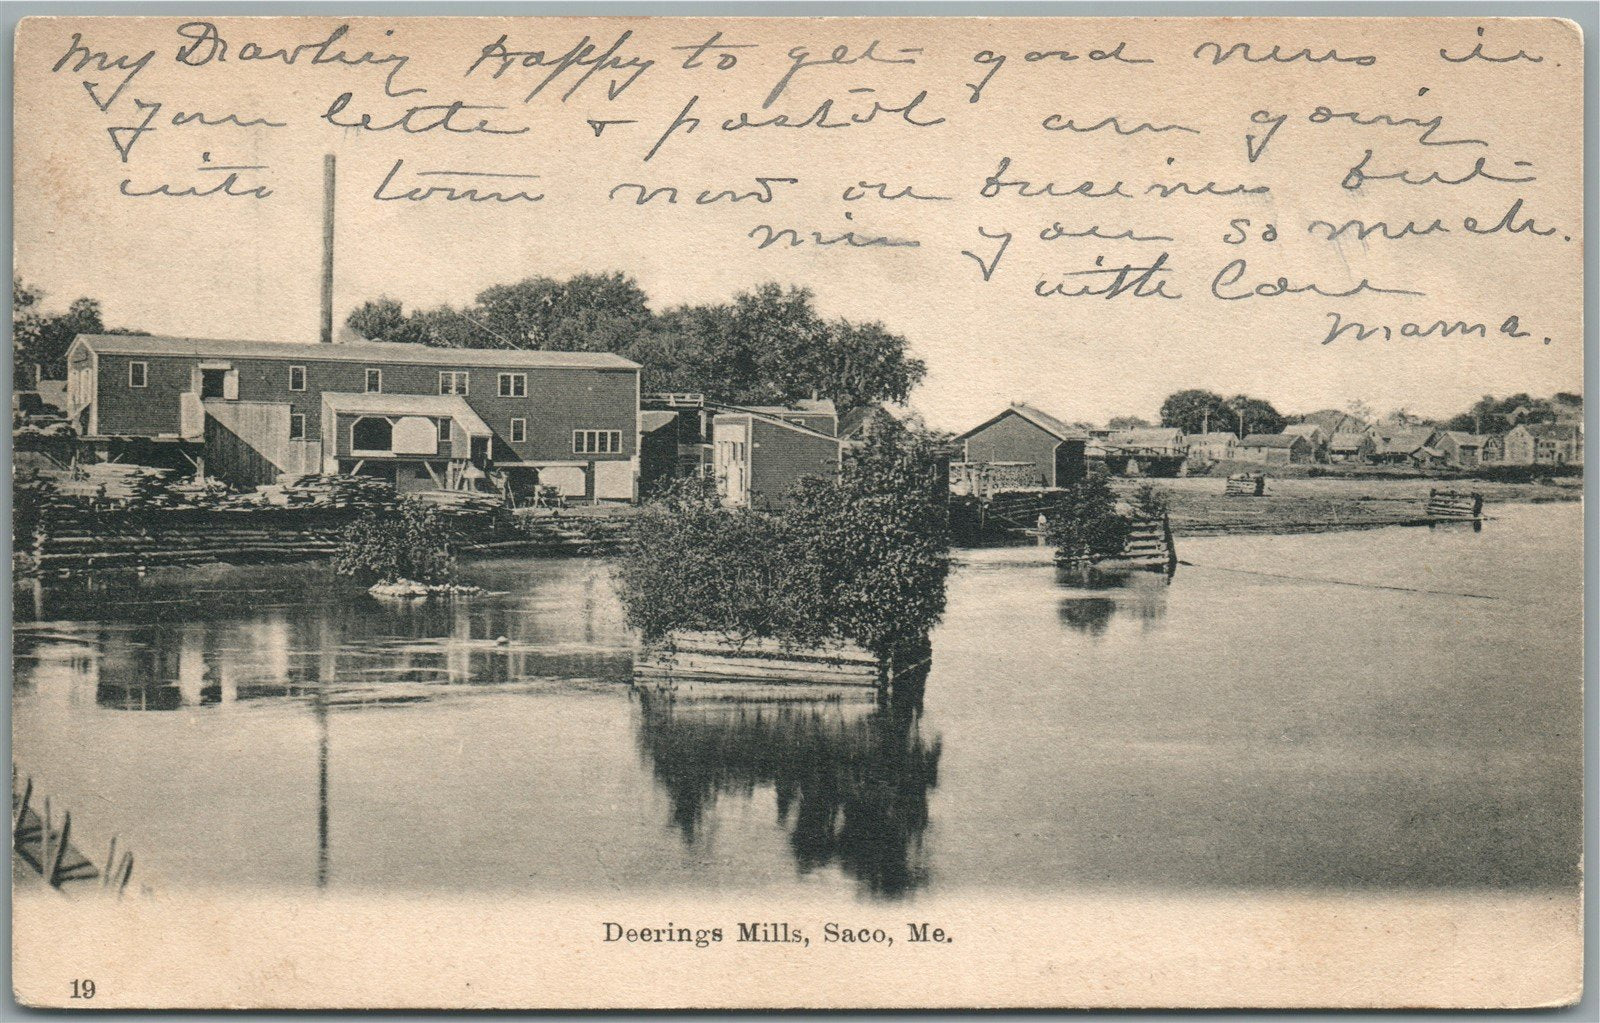 My Darling Happy to get good news in
your letter & postal am going
into town now on business but
miss you so much.
with Love
Mama.
Deerings Mills, Saco, Me.
19